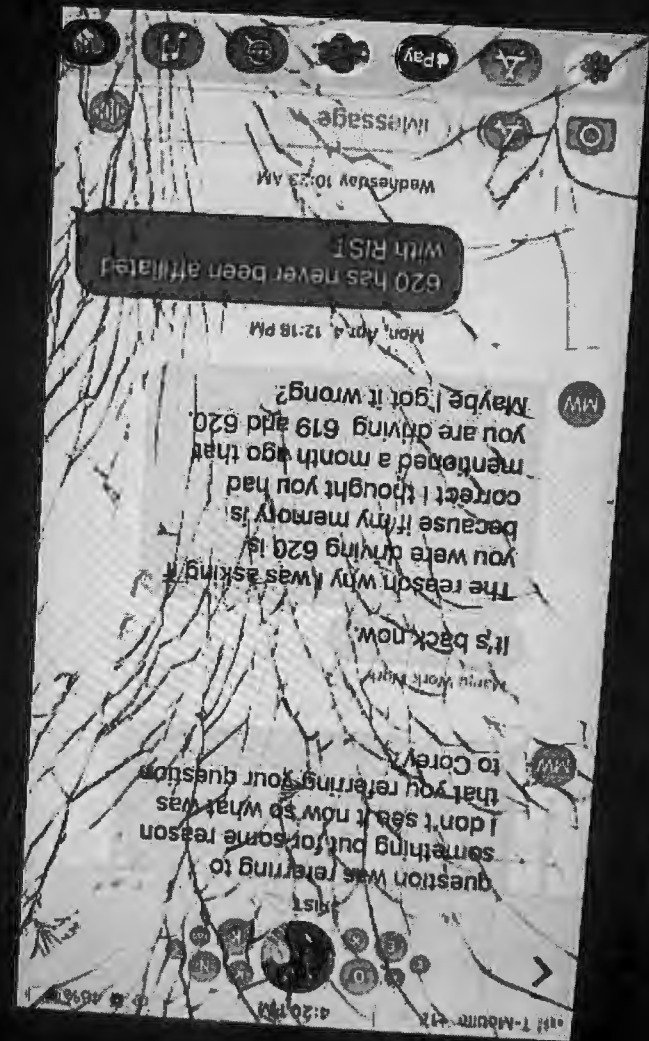 4:20 PM
RIST
question was referring to
something but for some reason
I don't see it now so what was
that you referring your question
to Corey?
MW
It's back now.
The reason why I was asking if
you were driving 620 is
because if my memory is
correct I thought you had
mentioned a month ago that
you are driving 619 and 620.
Maybe I got it wrong?
MW
Mon, Apr 4, 12:18 PM
620 has never been affiliated
with RIST
Wednesday 10:23 AM
iMessage
Pay